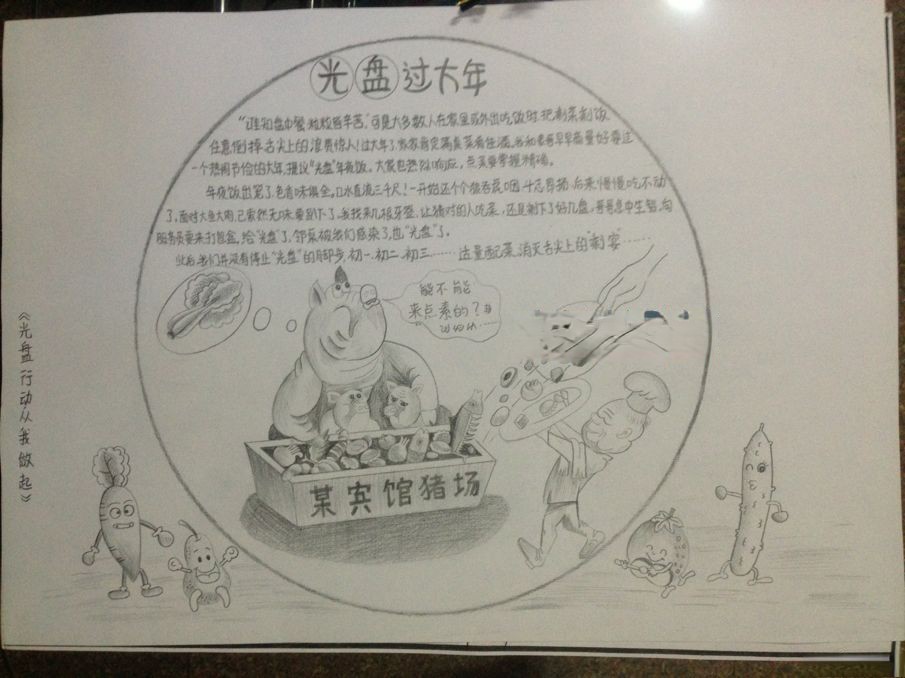 光盘过大年
"谁知盘中餐,粒粒皆辛苦。"可是大多数人在家里或外出吃饭时,把剩菜剩饭
任意倒掉,舌尖上的浪费惊人!过大年了,家家肯定满桌菜肴佳酒,我和爸爸早早商量好要过
一个热闹节俭的大年,提议"光盘"年夜饭。大家也热烈响应,点菜要掌握精确。
年夜饭出笼了,色香味俱全,口水直流三千尺!一开始还个个狼吞虎咽,斗志昂扬,后来慢慢吃不动
了,面对大鱼大肉,已索然无味要趴下了。我找来几根牙签,让猜对的人吃菜,还是剩下了好几盘,爸爸急中生智,向
服务员要来打包盒,给"光盘"了,邻桌被我们感染了,也"光盘"了。
此后,我们并没有停止"光盘"的脚步,初一、初二、初三……适量配菜,消灭舌尖上的"剩客"……
能不能
来点素的?
某宾馆猪场
《光盘行动从我做起》